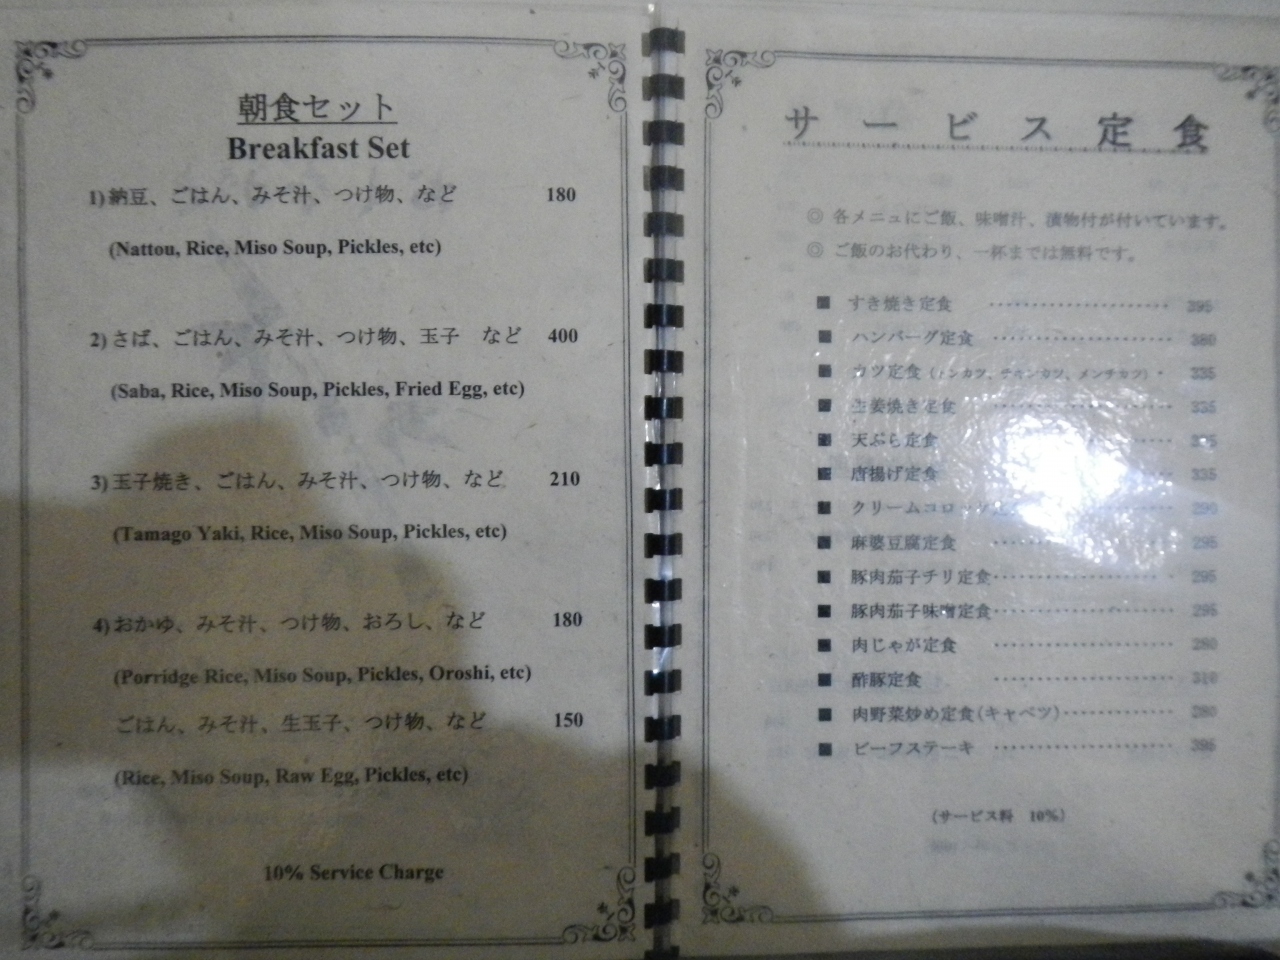 朝食セット
Breakfast Set
1) 納豆、ごはん、みそ汁、つけ物、など 180
(Nattou, Rice, Miso Soup, Pickles, etc)
2) さば、ごはん、みそ汁、つけ物、玉子 など 400
(Saba, Rice, Miso Soup, Pickles, Fried Egg, etc)
3) 玉子焼き、ごはん、みそ汁、つけ物、など 210
(Tamago Yaki, Rice, Miso Soup, Pickles, etc)
4) おかゆ、みそ汁、つけ物、おろし、など 180
(Porridge Rice, Miso Soup, Pickles, Oroshi, etc)
ごはん、みそ汁、生玉子、つけ物、など 150
(Rice, Miso Soup, Raw Egg, Pickles, etc)
10% Service Charge
サービス定食
◎ 各メニュにご飯、味噌汁、漬物付が付いています。
◎ ご飯のお代わり、一杯までは無料です。
■ すき焼き定食 ・・・・・・・・・・ 395
■ ハンバーグ定食 ・・・・・・・・・・ 380
■ カツ定食（トンカツ、チキンカツ、メンチカツ）・ 335
■ 生姜焼き定食 ・・・・・・・・・・ 335
■ 天ぷら定食
■ 唐揚げ定食 335
■ クリームコロッケ定食 290
■ 麻婆豆腐定食 ・・・・・・・・・・ 295
■ 豚肉茄子チリ定食・・・・・・・・・・ 295
■ 豚肉茄子味噌定食・・・・・・・・・・ 295
■ 肉じゃが定食 ・・・・・・・・・・ 280
■ 酢豚定食 ・・・・・・・・・・ 310
■ 肉野菜炒め定食（キャベツ）・・・・・・ 280
■ ビーフステーキ ・・・・・・・・・・ 395
（サービス料 10%）